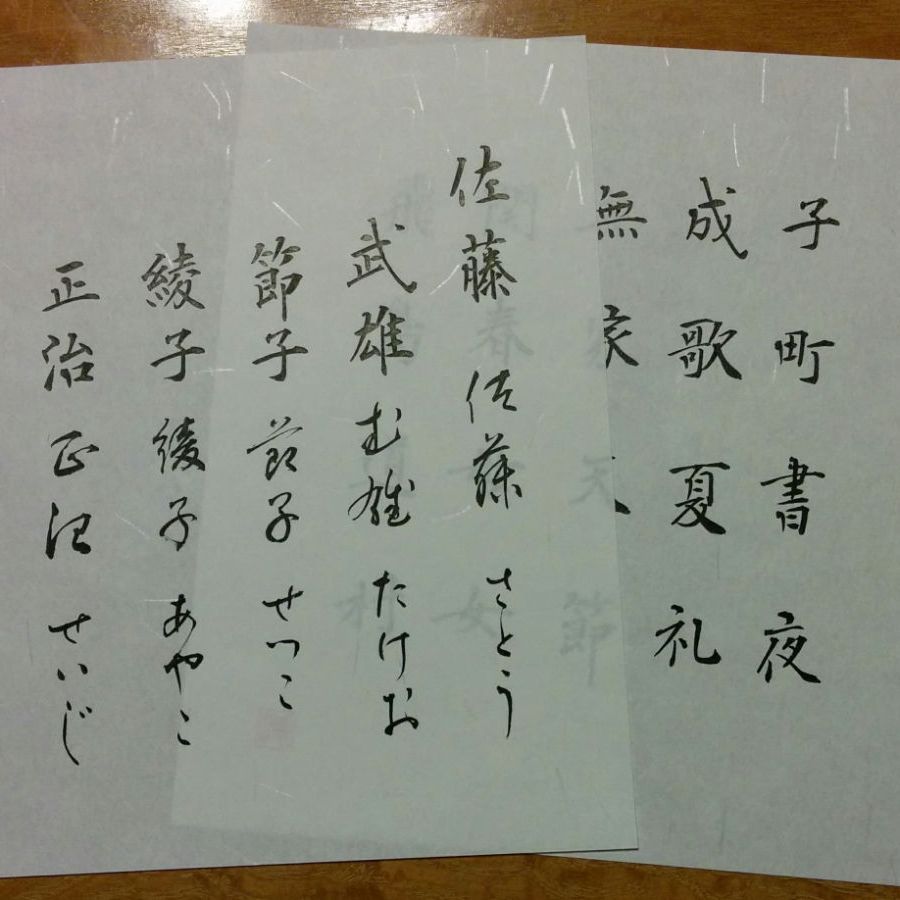 子町書夜
成歌夏礼
無家天節
佐藤 佐藤 さとう
武雄 武雄 たけお
節子 節子 せつこ
綾子 綾子 あやこ
正治 正治 せいじ